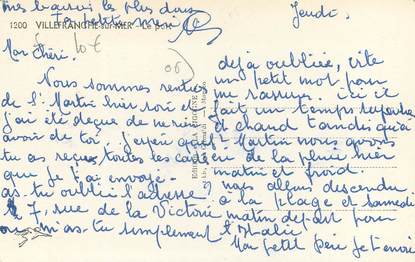 mes baisers les plus doux
Ta petite
Jeudi.
1200 VILLEFRANCHE-sur-MER Le port
Mon Chéri.
Nous sommes rentrés
de St Martin hier soir et
j'ai été deçue de ne rien
avoir de toi. j'espère que
tu as reçu toutes les cartes
que je t'ai envoyé.
as-tu oublié l'adresse ?
7, rue de la Victoire
ou m'as-tu simplement
déjà oubliée, vite
un petit mot pour
me rassurer. ici il
fait un temps superbe
et chaud tandis qu'à
St Martin nous avons
eu de la pluie hier
matin et froid.
nous allons descendre
à la plage et samedi
matin départ pour
l'Italie
Mon petit je t'envoie